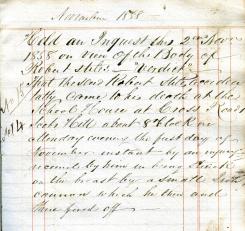 November 1858
Held an Inquest this 2nd Novr
1858 on view of the Body of
Robert Stiles "Verdict"
That the said Robert Stiles
came to his death at the
House at Cross Road
Hill about 8 o'clock in
evening the first day of
November instant by an injury
received by him in being struck
on the breast by a small
cannon which he then and
there fired off